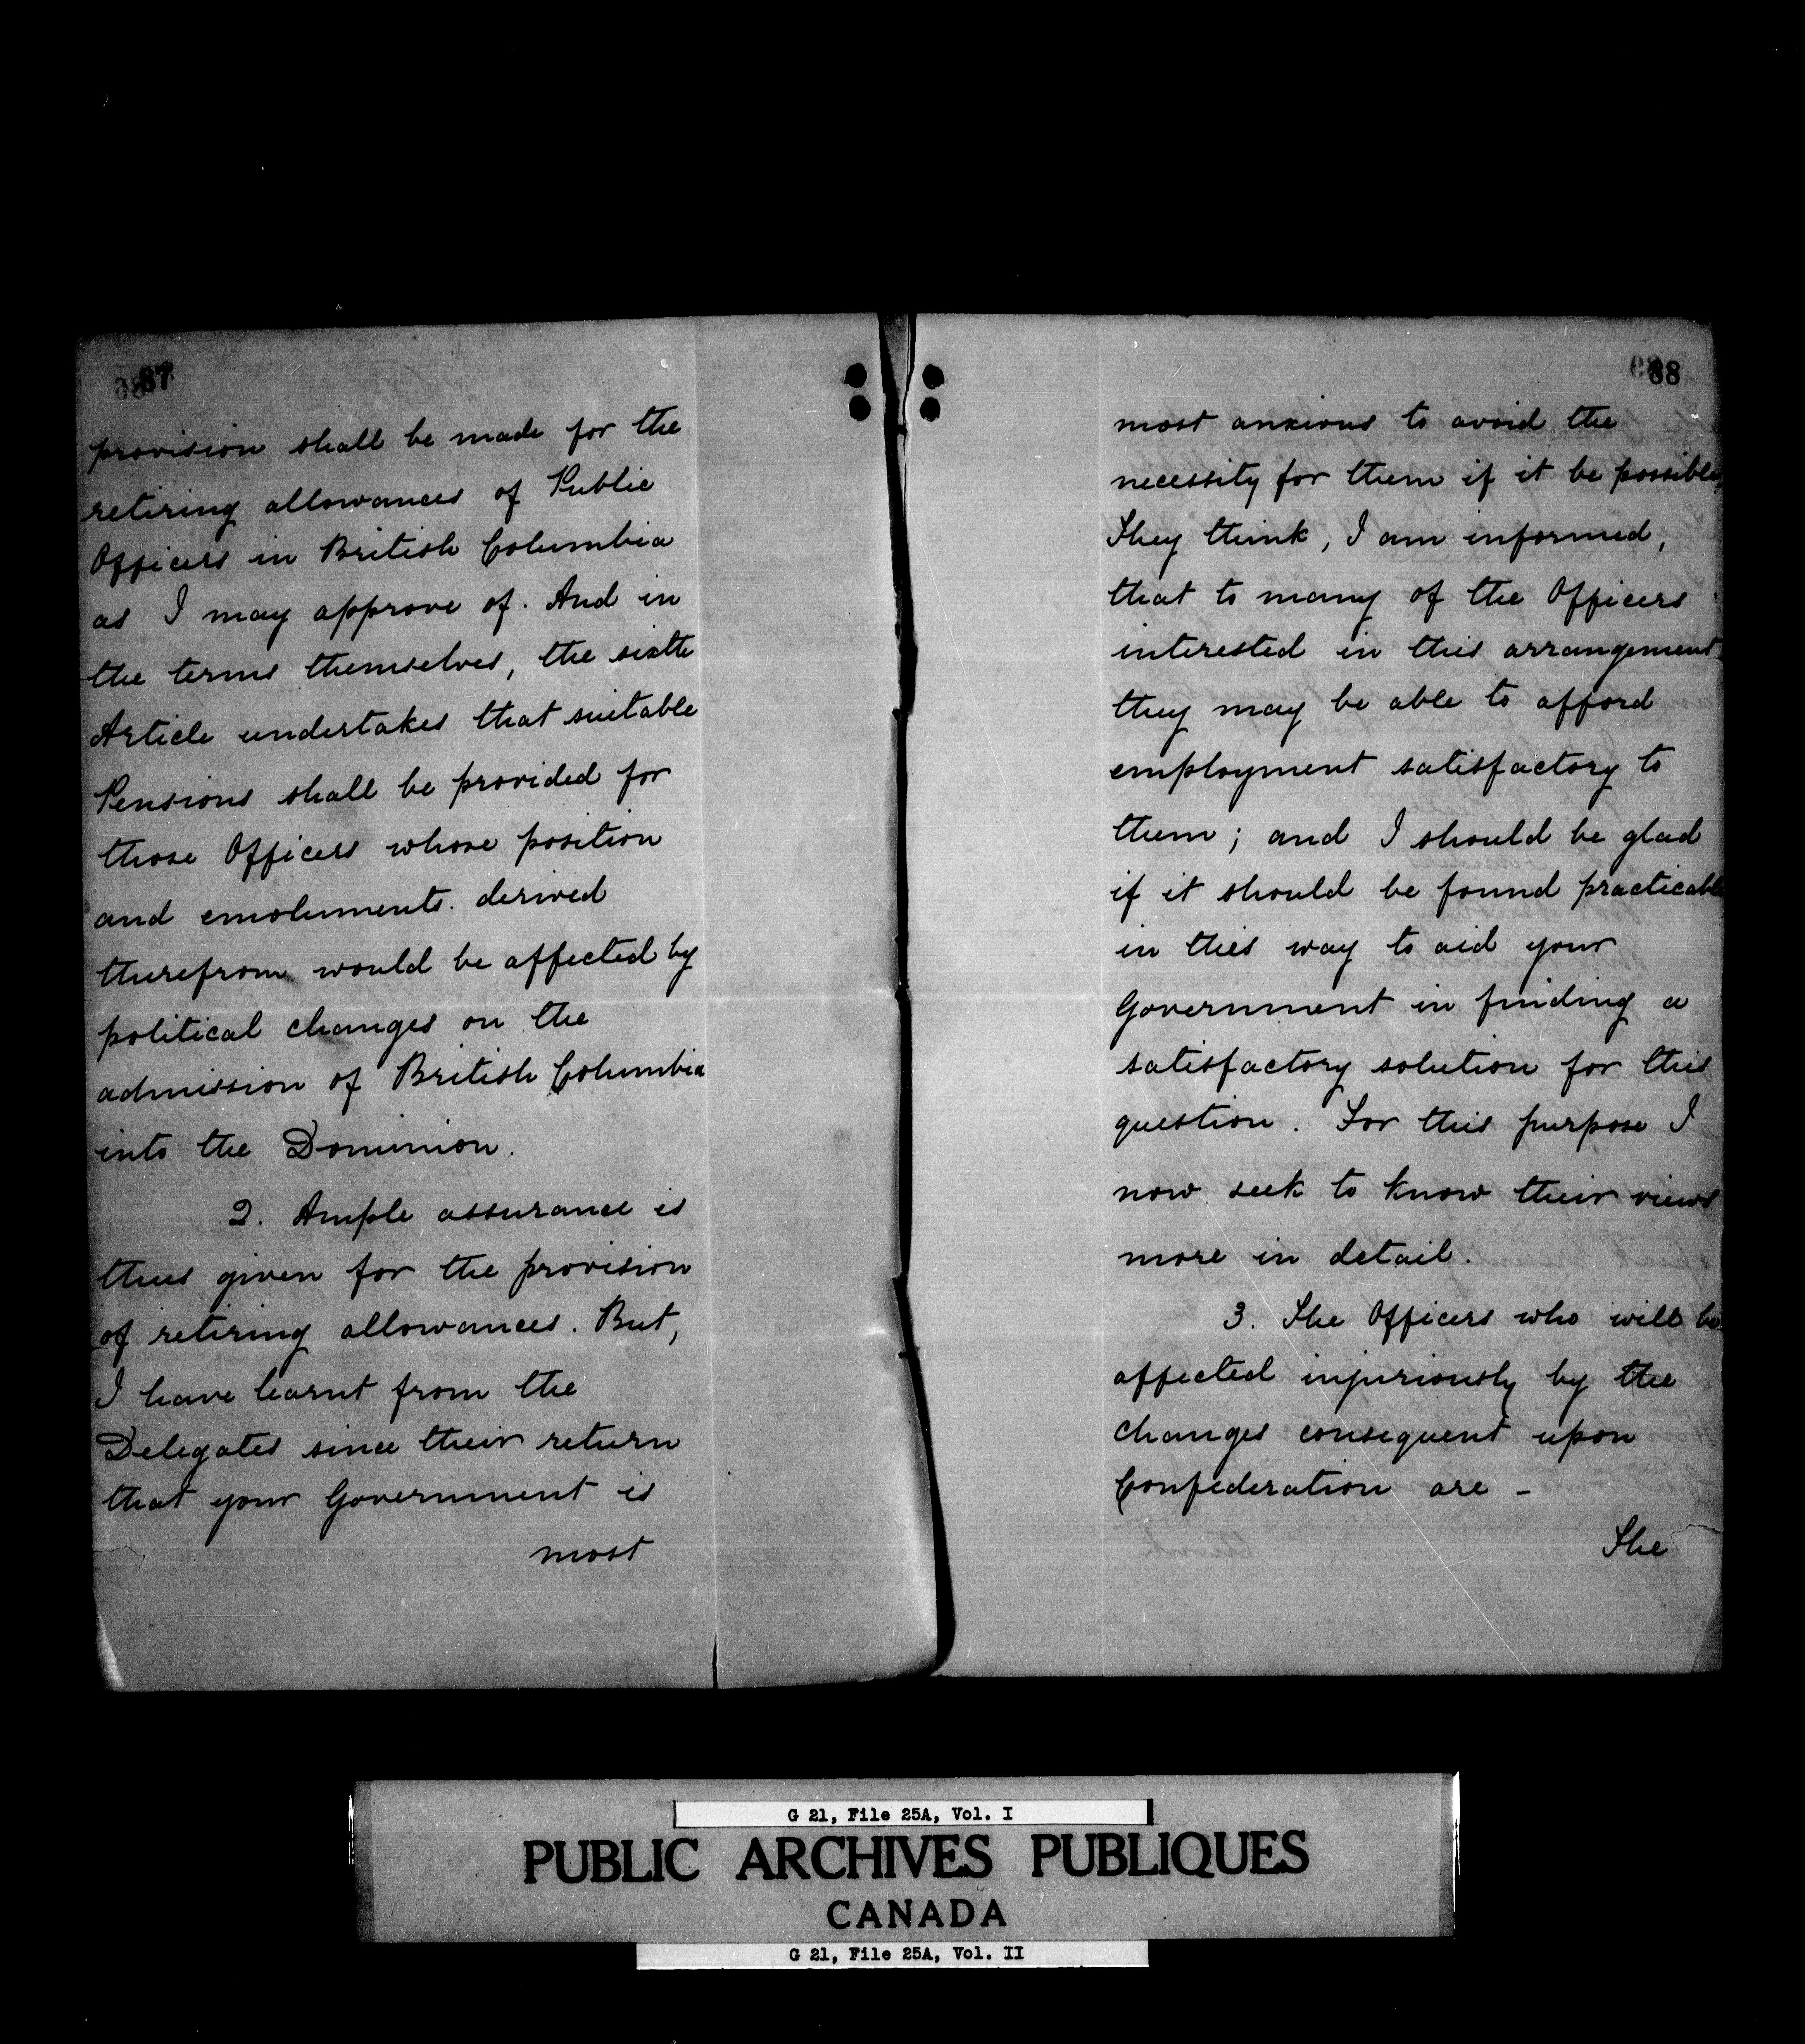 87
provision shall be made for the
retiring allowances of Public
Officers in British Columbia
as I may approve of. And in
the terms themselves, the sixth
Article undertakes that suitable
Pensions shall be provided for
those Officers whose position
and emoluments derived
therefrom would be affected by
political changes on the
admission of British Columbia
into the Dominion.
2. Ample assurance is
thus given for the provision
of retiring allowances. But,
I have learnt from the
Delegates since their return
that your Government is
most
88
most anxious to avoid the
necessity for them if it be possible.
They think, I am informed,
that to many of the Officers
interested in this arrangement
they may be able to afford
employment satisfactory to
them; and I should be glad
if it should be found practicable
in this way to aid your
Government in finding a
satisfactory solution for this
question. For this purpose I
now seek to know their views
more in detail.
3. The Officers who will be
affected injuriously by the
changes consequent upon
Confederation are -
The
G 21, File 25A, Vol. I
PUBLIC ARCHIVES PUBLIQUES
CANADA
G 21, File 25A, Vol. II